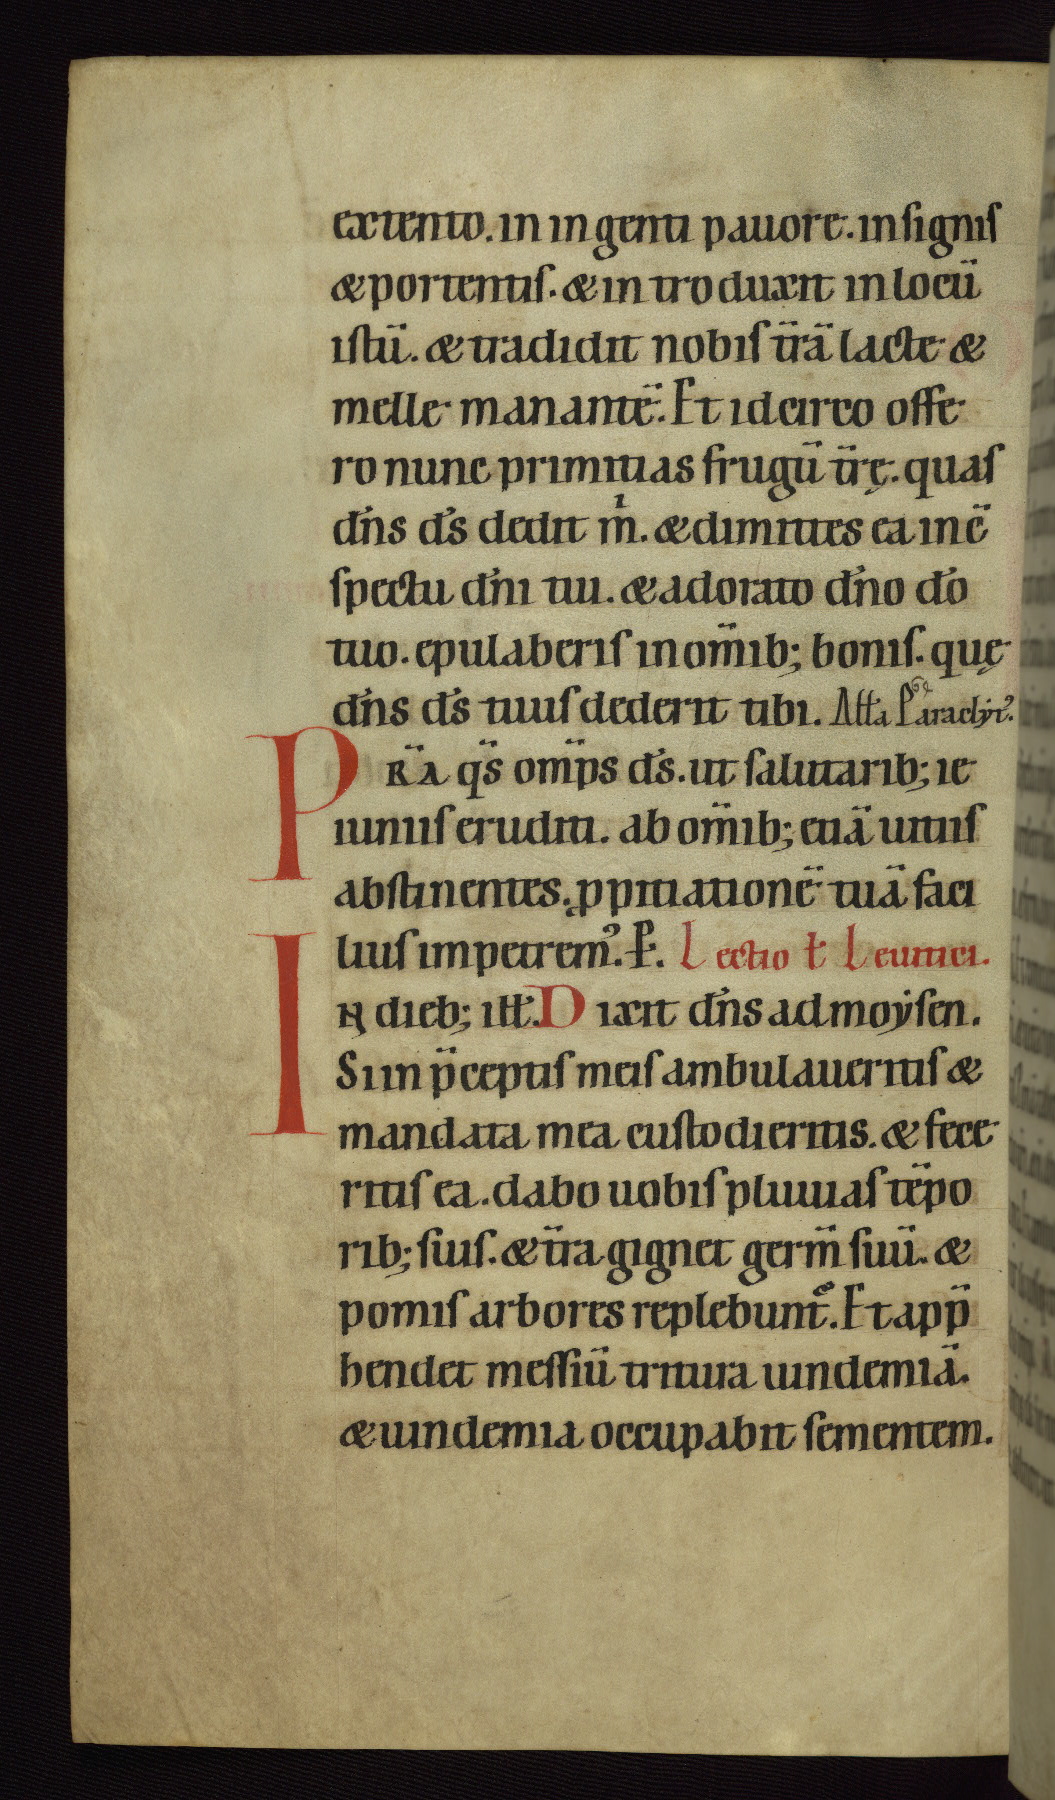 extento. in ingenti pauore. in signis
& portentis. & introduxit in locū
istū. & tradidit nobis t̄rā lacte &
melle manantē. Et idcirco offe
ro nunc primitias frugū t̄rę. quas
dn̄s ds̄ dedit m̄. & dimittes ea in c̄
spectu dn̄i tui. & adorato dn̄o dō
tuo. epulaberis in om̄ib; bonis. quę
dn̄s ds̄ tuus dederit tibi. Aƚƚa Paraclyt᾿.
PRĀ qs̄ omp̄s ds̄. ut salutarib; ie
iuniis eruditi. ab om̄ib; etiā uitiis
abstinentes. ꝓpitiationē tuā faci
lius impetrem᾿. P̄. Lectio ƚ Leuitici.
IN dieb; iƚƚ. Dixit dn̄s ad moẏsen.
Si in p̄ceptis meis ambulaueritis &
mandata mea custodieritis. & fece
ritis ea. dabo uobis pluuias tēpo
rib; suis. & t̄ra gignet germ̄ suū. &
pomis arbores replebunt᾿. Et app̄
hendet messiū tritura uindemiā.
& uindemia occupabit sementem.